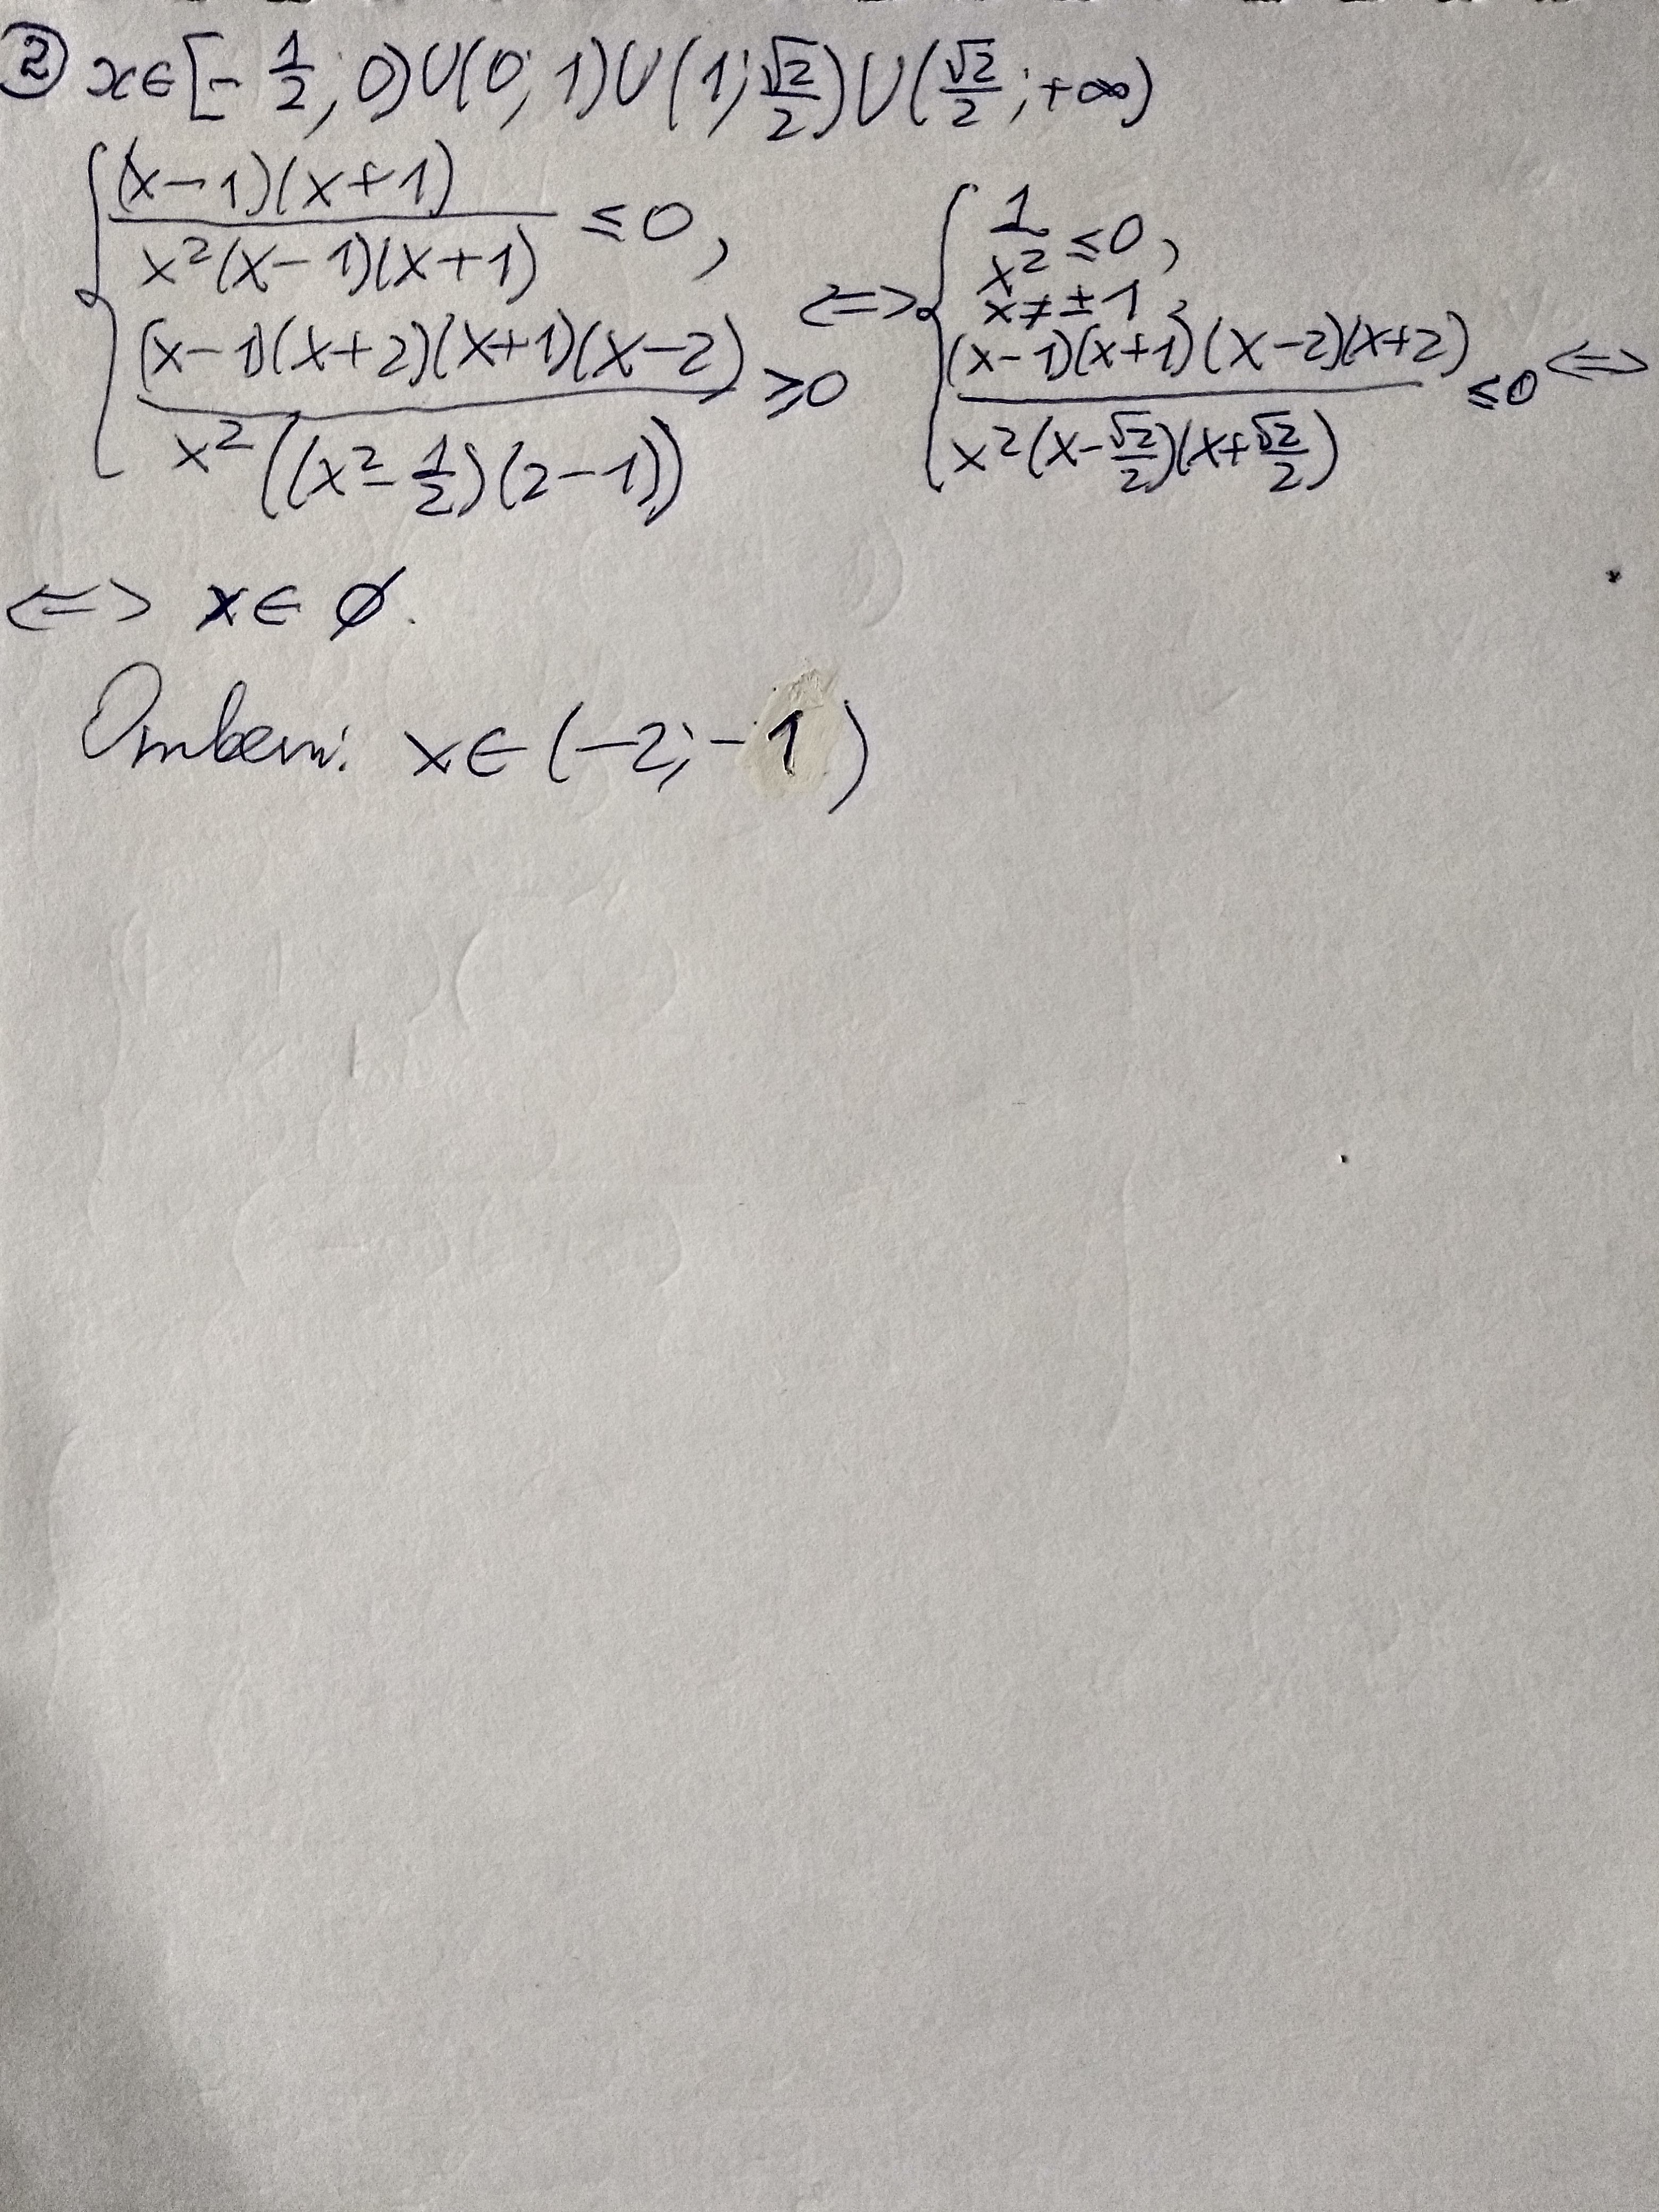 ② x∈[-1/2; 0)∪(0; 1)∪(1; √2/2)∪(√2/2; +∞)
{ (x-1)(x+1) / x²(x-1)(x+1) ≤ 0,
(x-1)(x+2)(x+1)(x-2) / x²((x²-1/2)(2-1)) ≥ 0
<=> { 1/x² ≤ 0,
x≠±1,
(x-1)(x+1)(x-2)(x+2) / x²(x-√2/2)(x+√2/2) ≤ 0 <=>
<=> x∈ ∅.
Ответ: x∈(-2; -1)